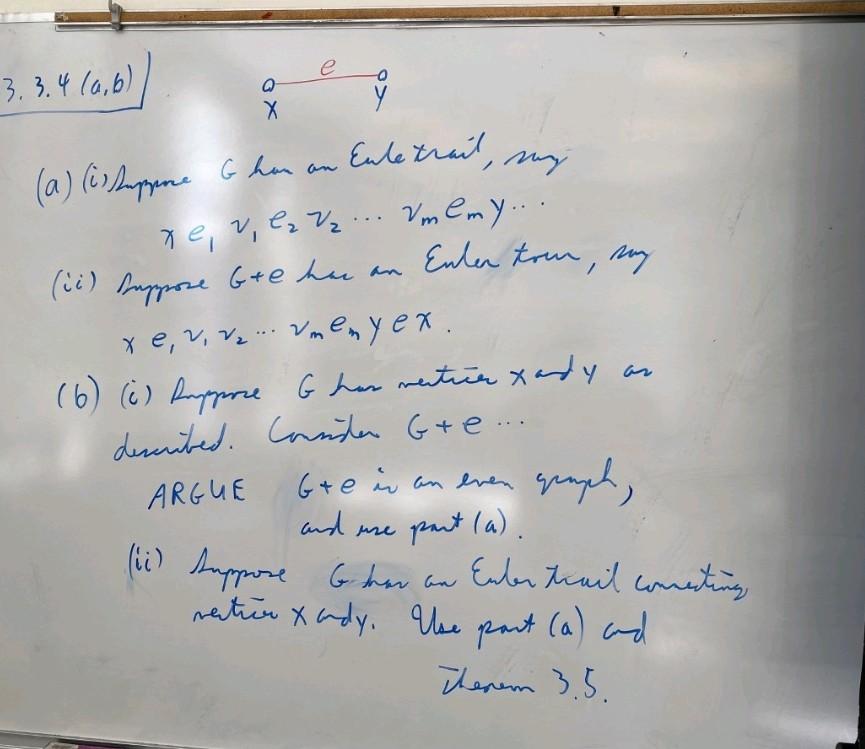 3.3.4 (a,b)
e
x y
(a) (i) Suppose G has an Euler trail, say
x e₁ v₁ e₂ v₂ ... vₘ eₘ y...
(ii) Suppose G+e has an Euler tour, say
x e₁ v₁ v₂ ... vₘ eₘ y e x.
(b) (i) Suppose G has vertices x and y as
described. Consider G+e ...
ARGUE G+e is an even graph,
and use part (a).
(ii) Suppose G has an Euler trail connecting
vertices x and y. Use part (a) and
Theorem 3.5.